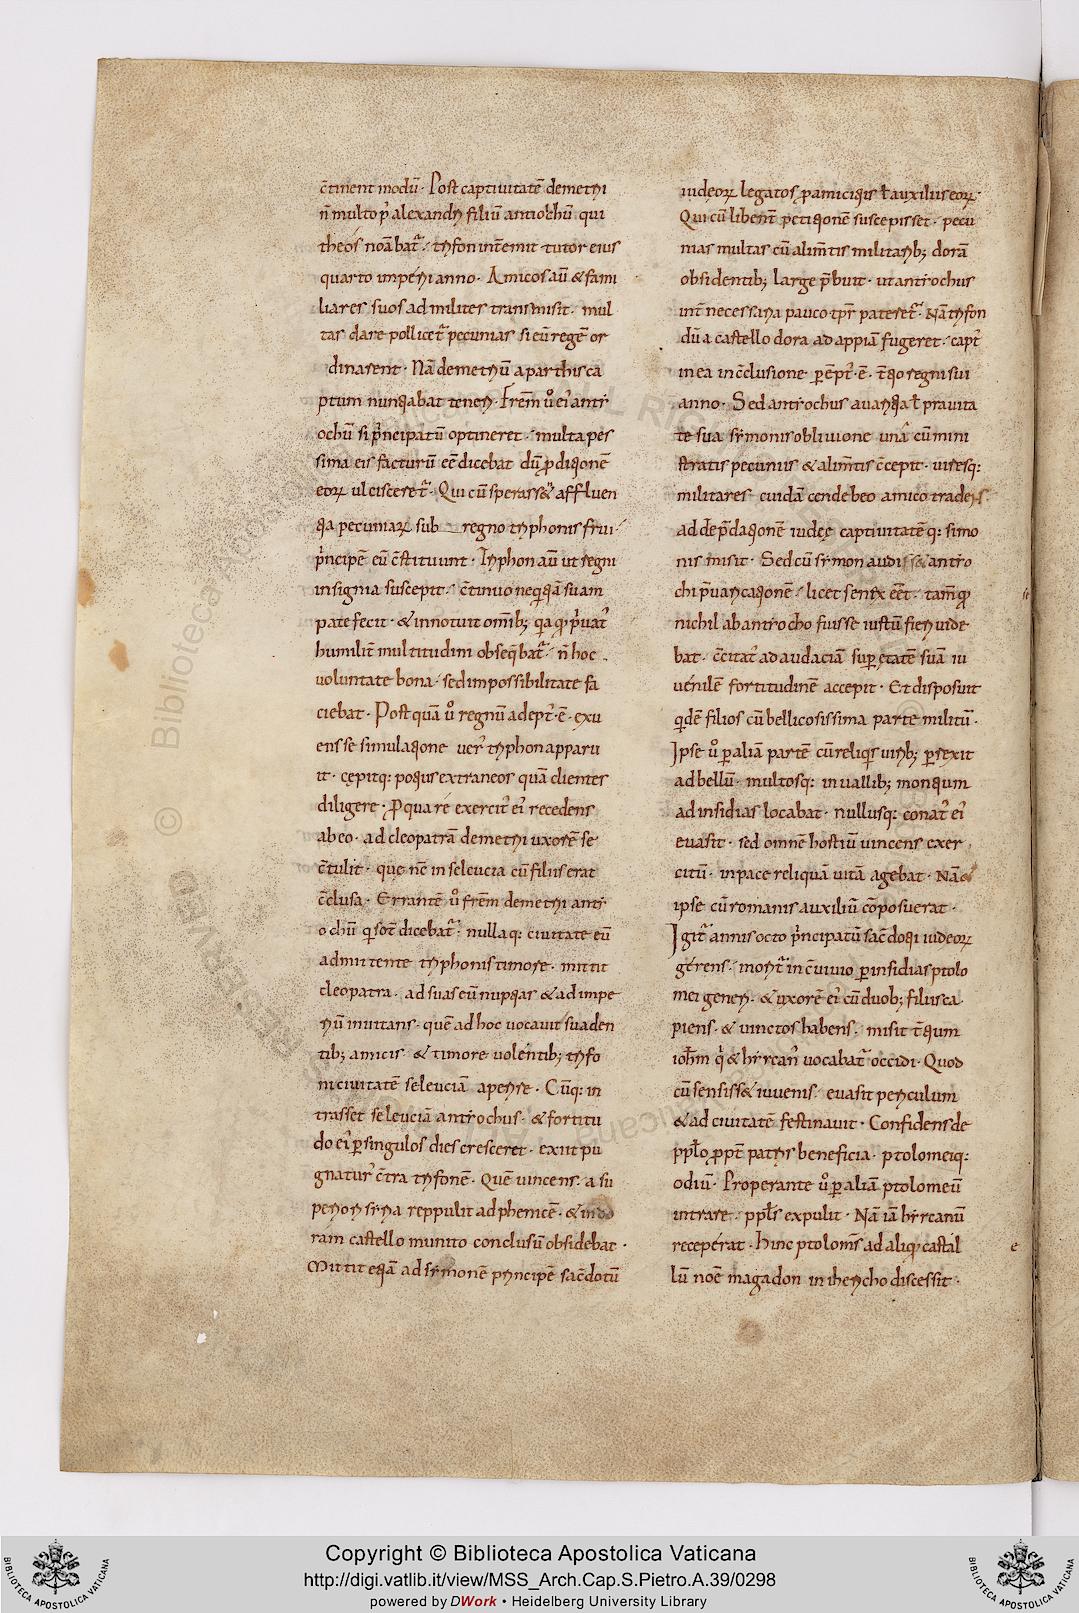 c̄tinent modū· Post captivitatē demetrii
n̄ multo p̄ alexandri filiū antiochū qui
theos noābat᷑· tryfon int̄emit tutor eius
quarto imperii anno· Amicos aū & fami
liares suos ad milites transmisit· mul
tas dare pollicet᷑ pecunias si eū regē or
dinarent· Nā demetriū a parthis ca
ptum nunꝗabat teneri· Frēm ū ei᷑ anti
ochū si p̄ncipatū optineret· multa pes
sima eis facturū eē dicebat dū ꝓdiꝗonē
eoꝝ ulcisceret᷑· Qui cū sperass& affluen
ꝗa pecuniaꝝ sub regno tryphonis frui·
p̄ncipē eū c̄stituunt· Tryphon aū ut regni
insignia suscepit· c̄tinuo neqꝗā suam
patefecit· & innotuit om̄ib; qa qp p̄uat᷑
humilit̄ multitudini obseqbat᷑· n̄ hoc
voluntate bona· sed impossibilitate fa
ciebat· Postquā ū regnū adept᷑·ē· exu
ens se simulaꝗone ver᷑ tryphon apparu
it· cępitq: poꝗus extraneos quā clientes
diligere· Ꝓqua re exercit᷑ ei᷑ recedens
ab eo· ad cleopatrā demetrii uxorē se
c̄tulit· quę nc̄ in seleucia cū filiis erat
c̄clusa· Errantē ū frēm demetrii anti
ochū q sot̄ dicebat᷑· nullaq: civitate eū
admittente tryphonis timore· mittit
cleopatra· ad suas eū nupꝗas & ad impe
riū invitans· quē ad hoc vocavit suaden
tib; amicis & timore volentib; tryfo
ni civitatē seleuciā aperire· Cūq: in
trasset seleuciā antiochus· & fortitu
do ei᷑ ꝑ singulos dies cresceret· exiit pu
gnatur᷑ c̄tra tryfonē· Quē vincens· a su
periori siria reppulit ad phenicē· & in do
ram castello munito conclusū obsidebat·
Mittit eꝗā ad simonē principē sac̄dotū
iudeoꝝ legatos ꝓ amiciꝗis ł auxiliis eoꝝ·
Qui cū libent̄ petiꝗonē suscepisset· pecu
nias multas cū alim̄tis militarib; dorā
obsidentib; large p̄buit· ut antiochus
int̄ necessaria pauco tpr̄ pateret᷑· Nā tryfon
dū a castello dora ad appiā fugeret· capt᷑
in ea in c̄clusione· ꝑēpt᷑·ē· t̄ꝗo regni sui
anno· Sed antiochus avariꝗa ł pravita
te sua symonis oblivione unā cū mini
stratis pecuniis & alim̄tis c̄cepit· viresq:
militares cuidā cendebeo amico tradens
ad dep̄daꝗonē iudeę captivitatēq: simo
nis misit· Sed cū symon audiss& antio
chi p̄varicaꝗonē· licet senex eēt· tam̄ qp
nichil ab antiocho fuisse iustū fieri vide
bat· c̄citat᷑ ad audaciā suꝑ ętatē suā iu
venilē fortitudinē accepit· Et disposuit
qdē filios cū bellicosissima parte militū·
Ipse ū ꝑ aliā partē cū reliqis virib; ꝑrexit
ad bellū· multosq: in vallib; monꝗum
ad insidias locabat· nullusq: conat᷑ ei᷑
evasit· sed omnē hostiū vincens exer
citū· in pace reliquā vitā agebat· Nā &
ipse cū romanis auxiliū cōposuerat·
Igit᷑ annis octo p̄ncipatū sac̄doꝗi iudeoꝝ
gerens· morit᷑ in c̄vivio ꝑ insidias ptolo
mei generi· & uxorē ei᷑ cū duob; filiis ca
piens· & vinctos habens· misit t̄ꝗum
ioh̄m q̄ & hyrcan᷑ vocabat᷑ occidi· Quod
cū sensiss& iuvenis· evasit periculum
& ad civitatē festinavit· Confidens de
ppło ꝓpt̄ patris beneficia· ptolomeiq:
odiū· Properante ū ꝑ aliā ptolomeū
intrare· ppłs expulit· Nā iā hyrcanū
receperat· Hinc ptolom̄s ad aliqp castel
lū noē magadon in ihericho discessit·
Copyright © Biblioteca Apostolica Vaticana
http://digi.vatlib.it/view/MSS_Arch.Cap.S.Pietro.A.39/0298
powered by DWork • Heidelberg University Library